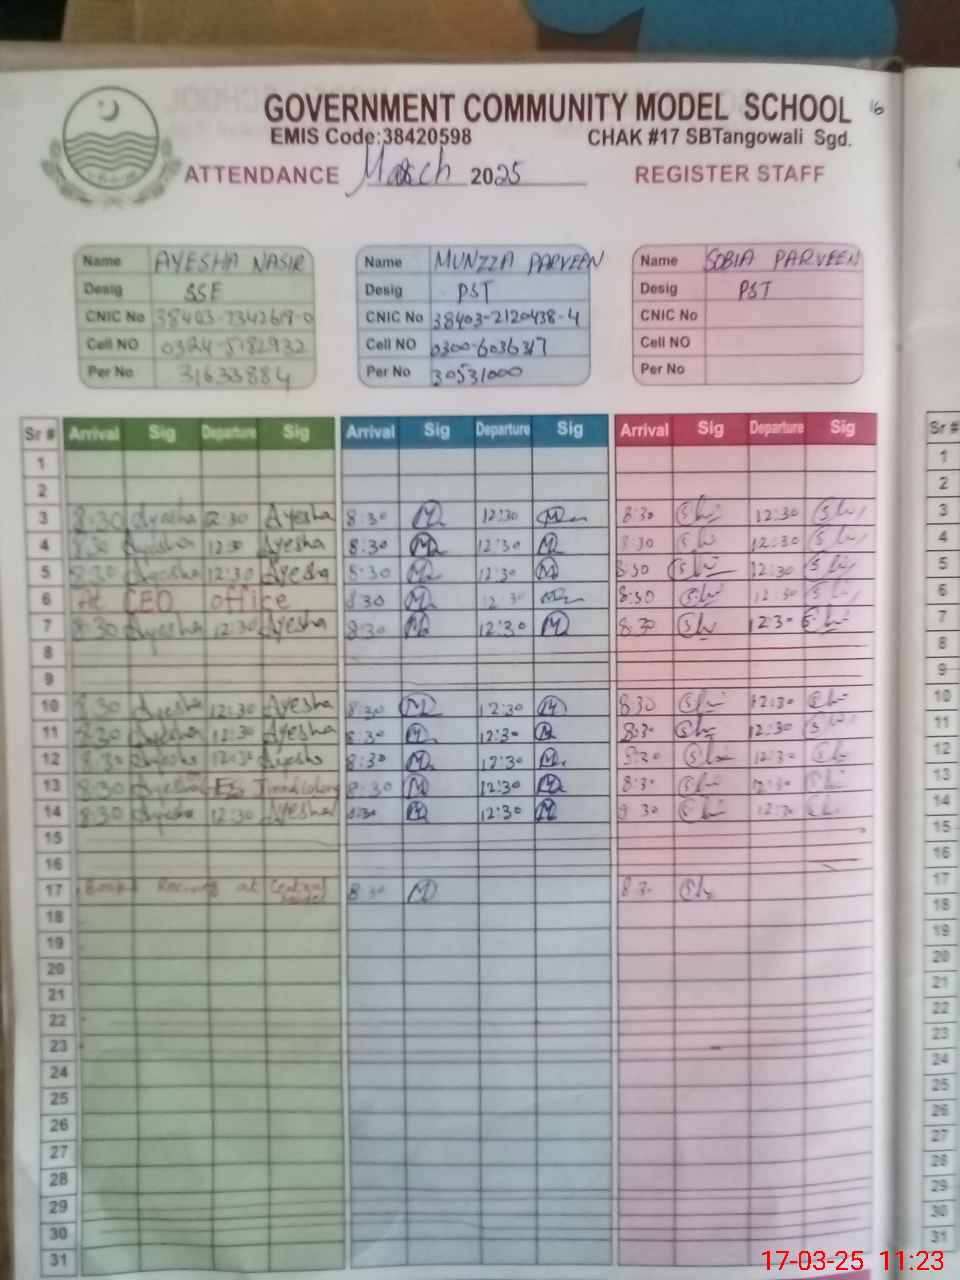 GOVERNMENT COMMUNITY MODEL SCHOOL 16
EMIS Code:38420598 CHAK #17 SBTangowali Sgd.
ATTENDANCE March 2025 REGISTER STAFF
Name AYESHA NASIR Name MUNZZA PARVEEN Name SOBIA PARVEEN
Desig SSE Desig PST Desig PST
CNIC No CNIC No 38403-2120438-4 CNIC No
Cell NO 0324-5182932 Cell NO 0300-6036317 Cell NO
Per No 31633884 Per No 30531000 Per No
Sr # Arrival Sig Departure Sig Arrival Sig Departure Sig Arrival Sig Departure Sig Sr #
1 1
2 2
3 8:30 Ayesha 12:30 Ayesha 8:30 M 12:30 M 8:30 12:30 3
4 8:30 Ayesha 12:30 Ayesha 8:30 M 12:30 M 8:30 12:30 4
5 8:30 Ayesha 12:30 Ayesha 8:30 M 12:30 M 8:30 12:30 5
6 At CEO office 8:30 M 12:30 M 8:30 12:30 6
7 8:30 Ayesha 12:30 Ayesha 8:30 M 12:30 M 8:30 12:30 7
8 8
9 9
10 8:30 Ayesha 12:30 Ayesha 8:30 M 12:30 M 8:30 12:30 10
11 8:30 Ayesha 12:30 Ayesha 8:30 M 12:30 M 8:30 12:30 11
12 8:30 Ayesha 12:30 Ayesha 8:30 M 12:30 M 8:30 12:30 12
13 8:30 Ayesha 8:30 M 12:30 M 8:30 12:30 13
14 8:30 Ayesha 12:30 Ayesha 8:30 M 12:30 M 8:30 12:30 14
15 15
16 16
17 at 8:30 M 8:30 17
18 18
19 19
20 20
21 21
22 22
23 23
24 24
25 25
26 26
27 27
28 28
29 29
30 30
31 31
17-03-25 11:23